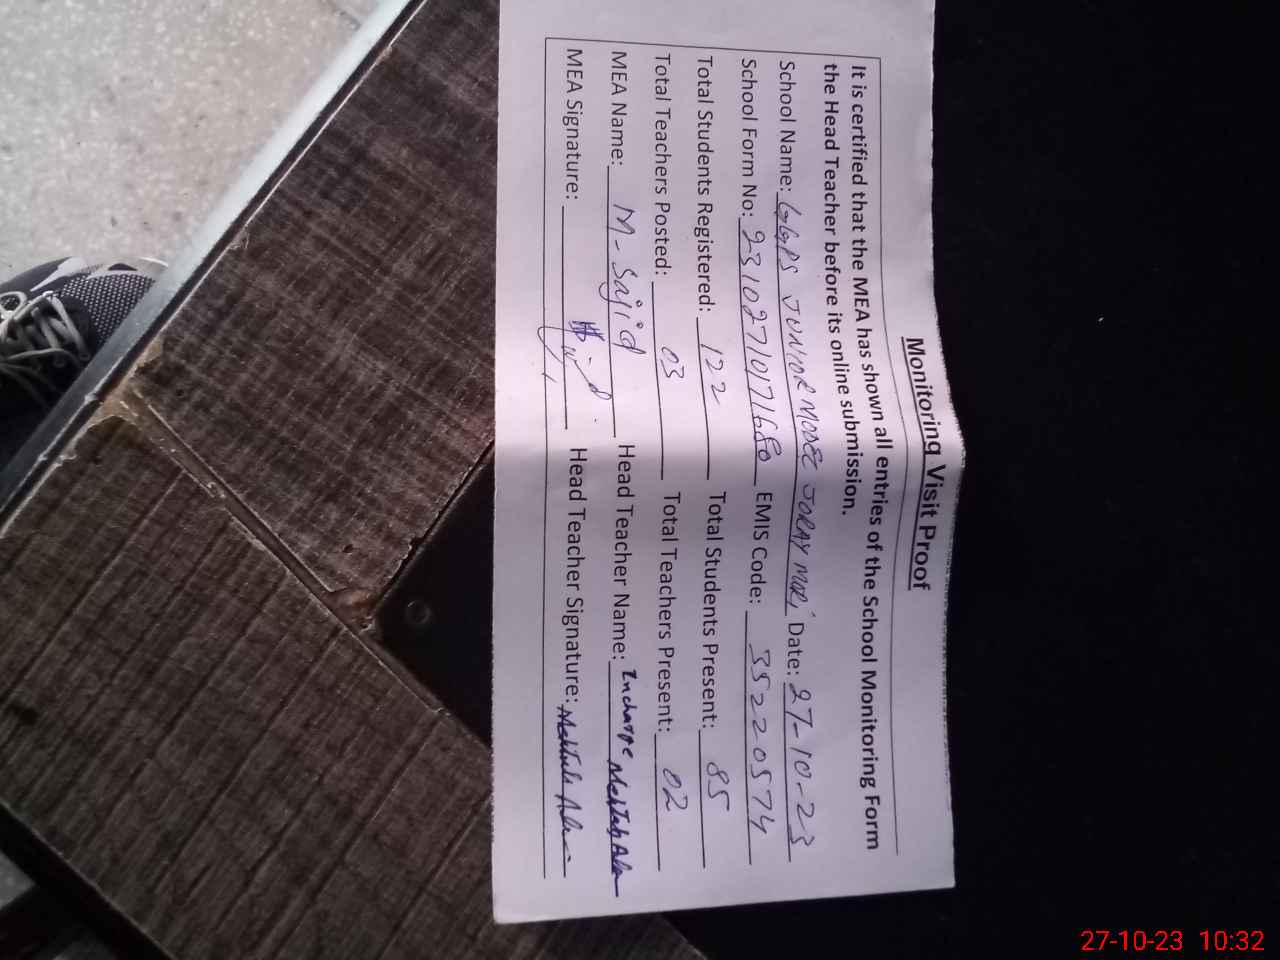 Monitoring Visit Proof
It is certified that the MEA has shown all entries of the School Monitoring Form
the Head Teacher before its online submission.
School Name: GGPS JUNIOR MODEL JORAY MORI Date: 27-10-23
School Form No: 23102710171680 EMIS Code: 35220574
Total Students Registered: 122 Total Students Present: 85
Total Teachers Posted: 03 Total Teachers Present: 02
MEA Name: M-Sajid Head Teacher Name: Incharge Mehtab
MEA Signature: Head Teacher Signature: Mehtab
27-10-23 10:32